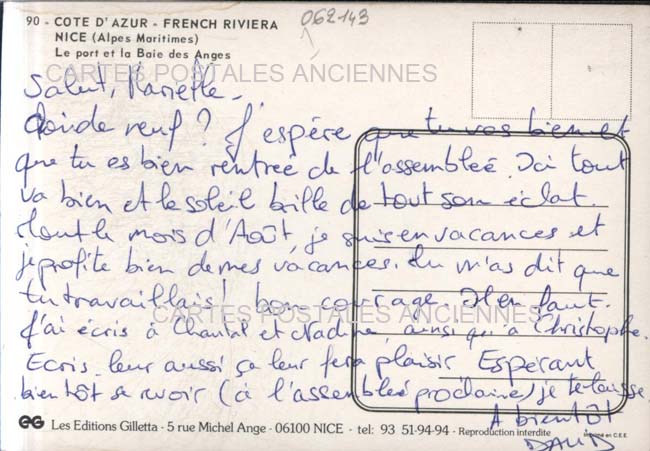 90 - COTE D'AZUR - FRENCH RIVIERA
062-143
NICE (Alpes Maritimes)
Le port et la Baie des Anges
CARTES POSTALES ANCIENNES
Salut, Mariette,
Quoi de neuf ? J'espère que tu vas bien et
que tu es bien rentrée de l'assembleé. Ici tout
va bien et le soleil brille de tout son éclat.
Tout le mois d'Août, je suis en vacances et
je profite bien de mes vacances. Tu m'as dit que
tu travaillais ! bon courage. Il en faut.
CARTES POSTALES ANCIENNES
J'ai écris à Chantal et Nadine, ainsi qu'à Christophe.
Ecris-leur aussi ça leur fera plaisir Espérant
bientôt se revoir (à l'assembleé prochaine) je te laisse
A bientôt
DAVID
EG Les Editions Gilletta - 5 rue Michel Ange - 06100 NICE - tel: 93 51-94-94 - Reproduction interdite
Imprimé en C.E.E.